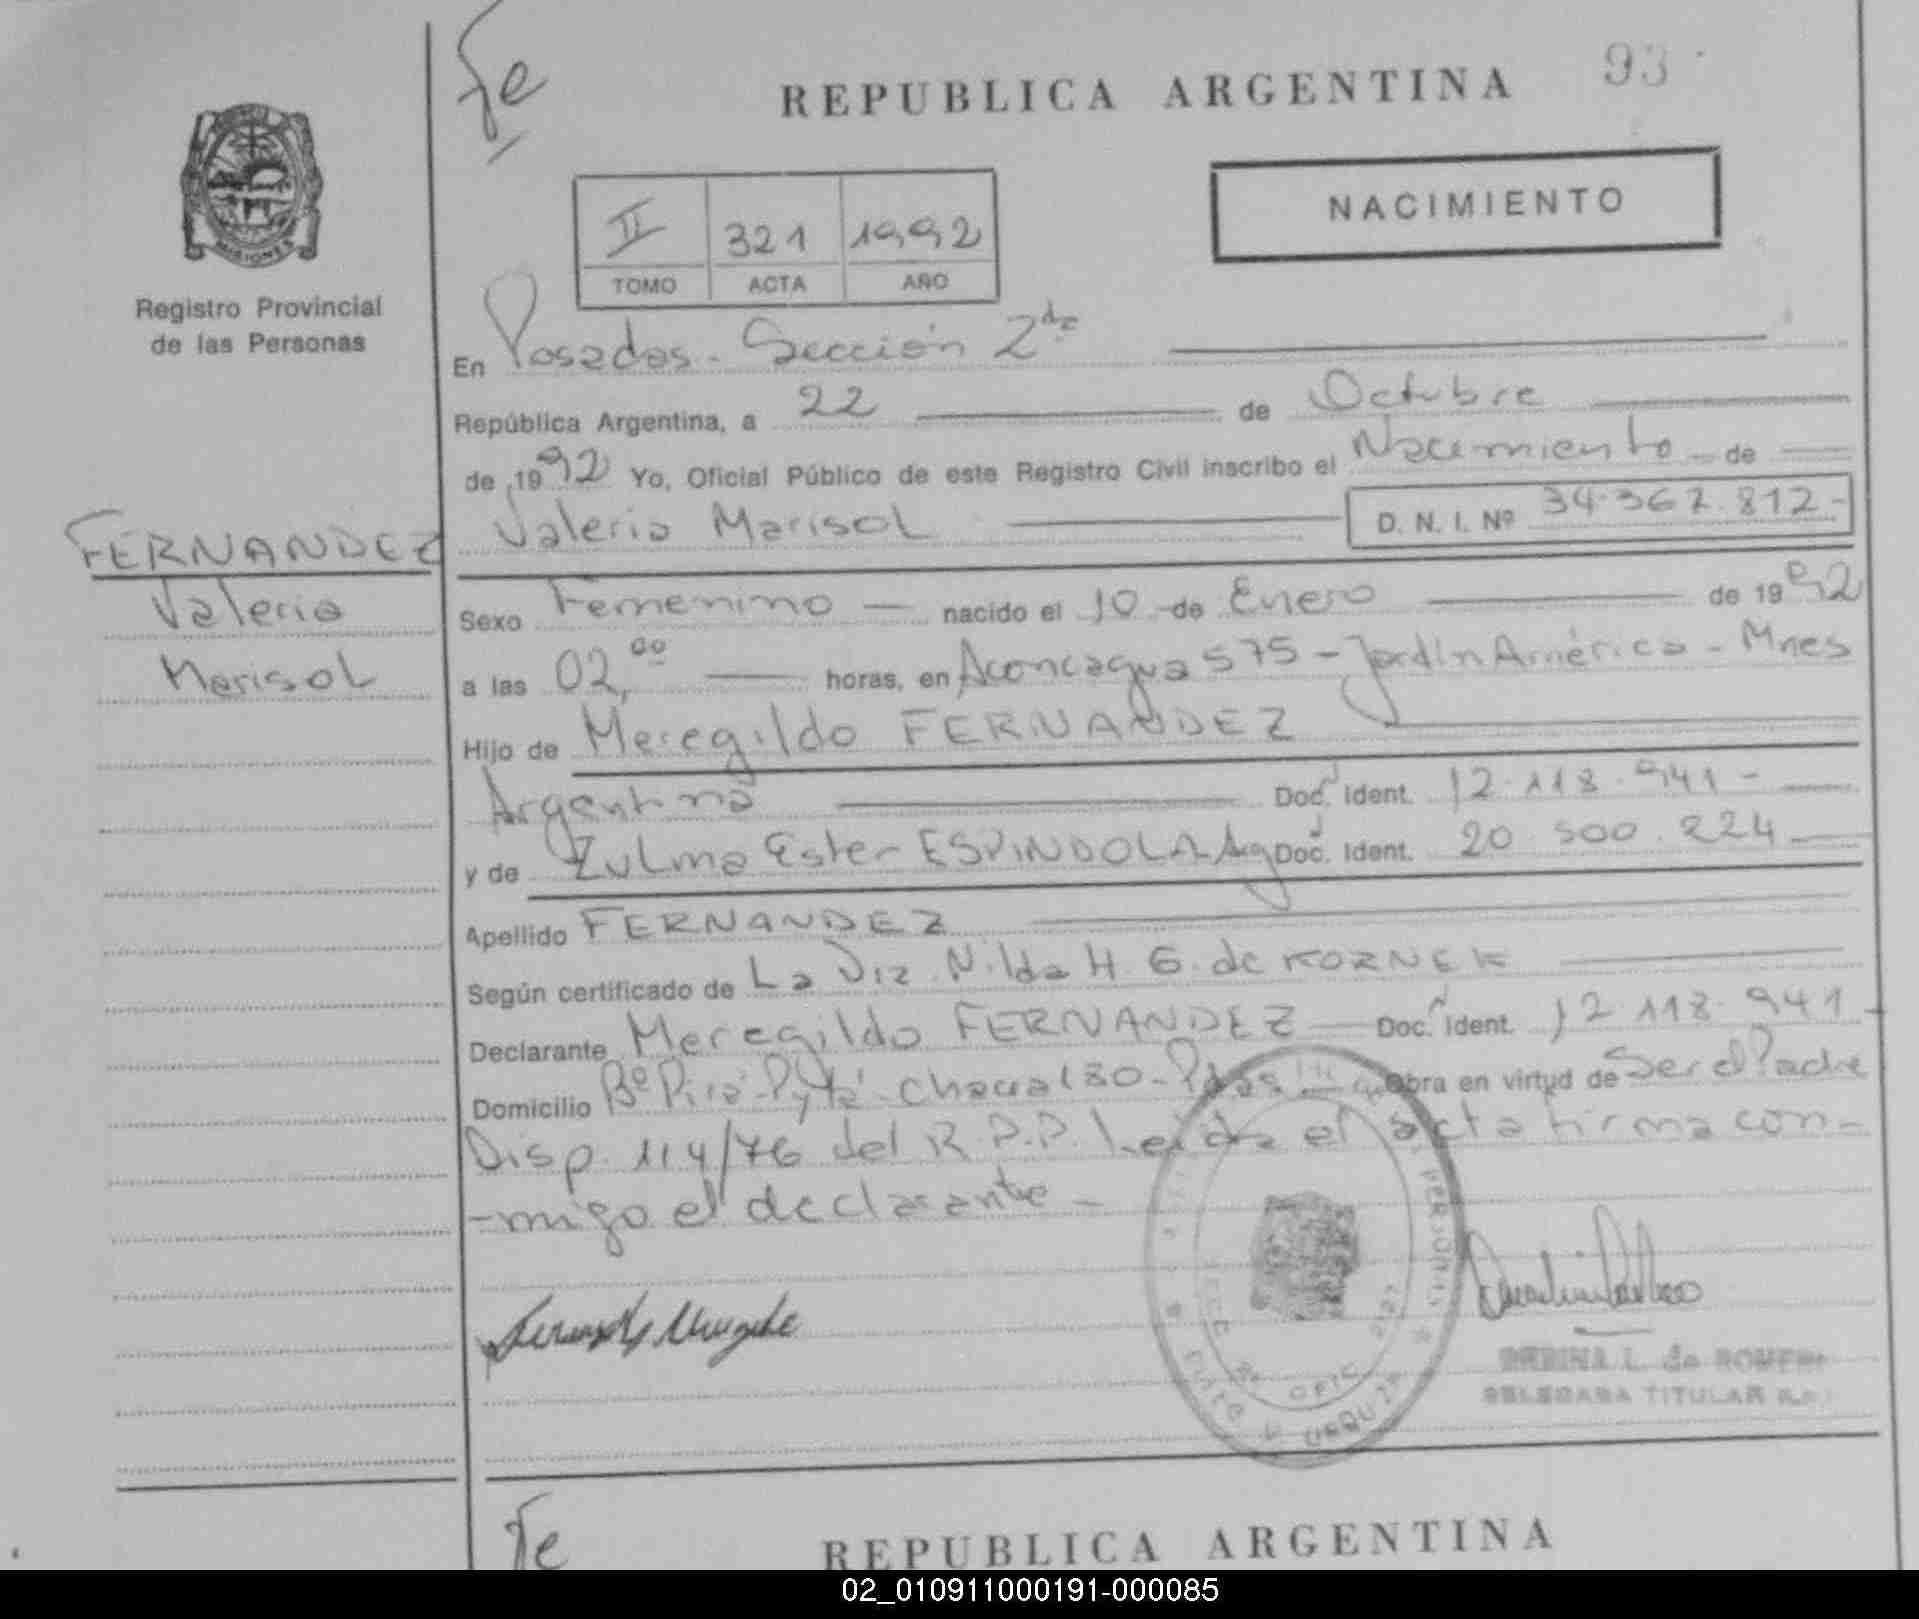 Fe
REPUBLICA ARGENTINA 93
II 321 1992
TOMO ACTA AÑO
NACIMIENTO
MISIONES
Registro Provincial
de las Personas
En Posadas - Sección 2da
República Argentina, a 22 de Octubre
de 1992 Yo, Oficial Público de este Registro Civil inscribo el Nacimiento - de
Valeria Marisol D. N. I. Nº 34.367.812-
FERNANDEZ
Valeria
Marisol
Sexo Femenino nacido el 10 de Enero de 1992
a las 02,00 horas, en Aconcagua 575 - Jardín América - Mnes
Hijo de Meregildo FERNANDEZ
Argentina Doc. Ident. 12.118.941 -
y de Zulma Ester ESPINDOLA Arg Doc. Ident. 20.500.224
Apellido FERNANDEZ
Según certificado de La Viz. Nilda H. G. de KORNEK
Declarante Meregildo FERNANDEZ Doc. Ident. 12.118.941 -
Domicilio Bº Pirá-Pytá - Chacra 180 - Pdas Obra en virtud de Ser el Padre
Disp. 114/76 del R.P.P. Leída el acta firma con-
-migo el declarante -
PERSONAS
OFIC
URQUIZA
L. de ROMERO
DELEGADA TITULAR
Fe
REPUBLICA ARGENTINA
02_010911000191-000085